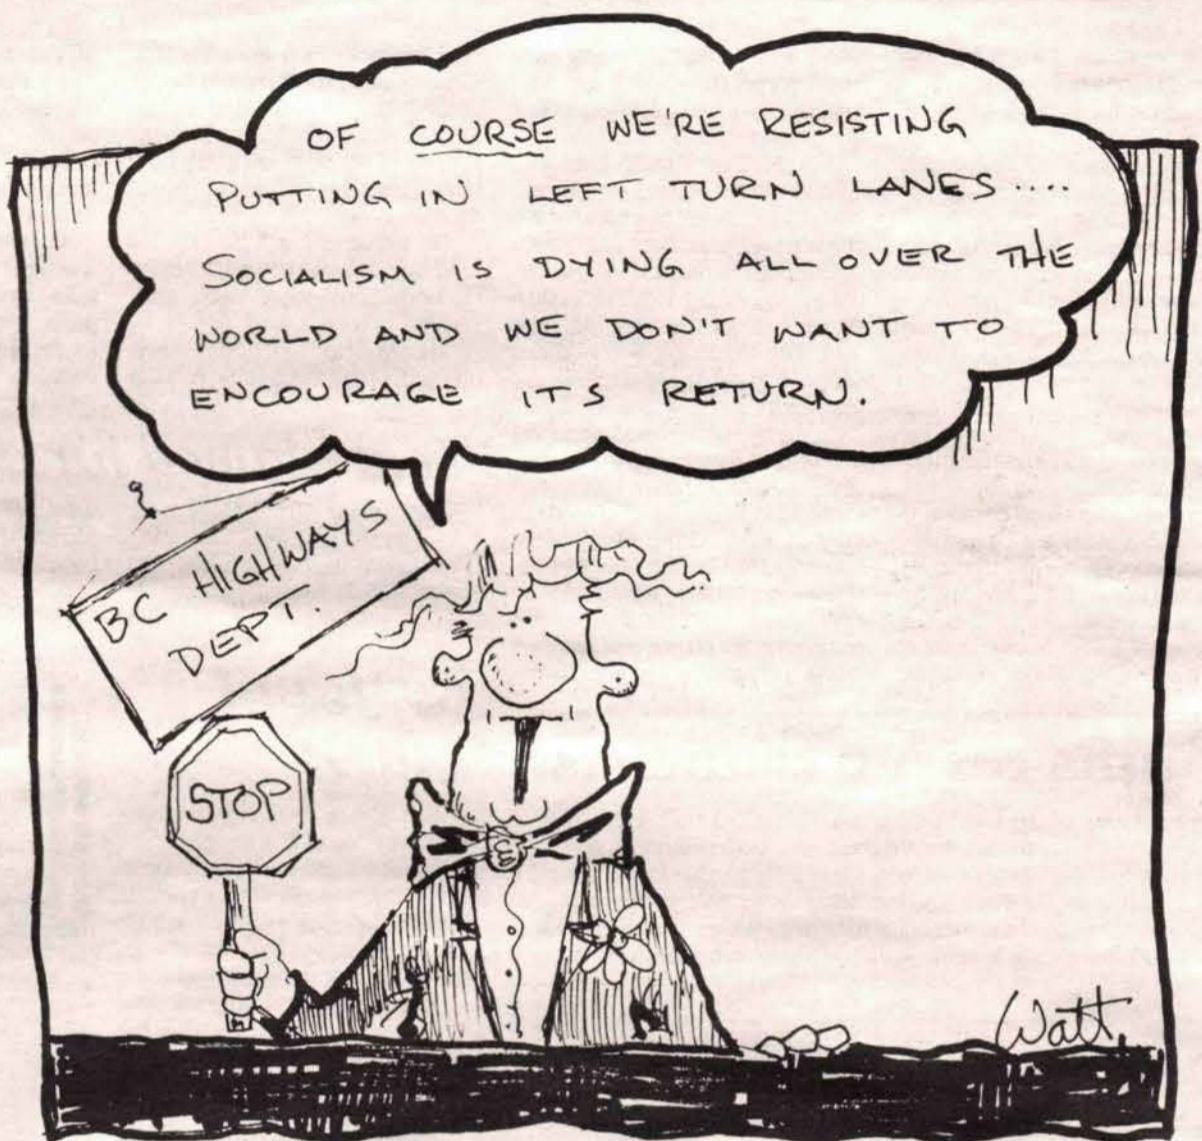 OF COURSE WE'RE RESISTING
PUTTING IN LEFT TURN LANES....
SOCIALISM IS DYING ALL OVER THE
WORLD AND WE DON'T WANT TO
ENCOURAGE ITS RETURN.
BC HIGHWAYS
DEPT.
STOP
Watt